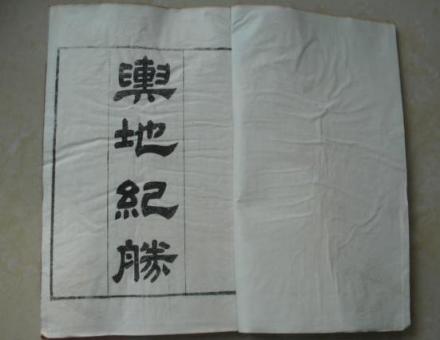 輿地紀勝